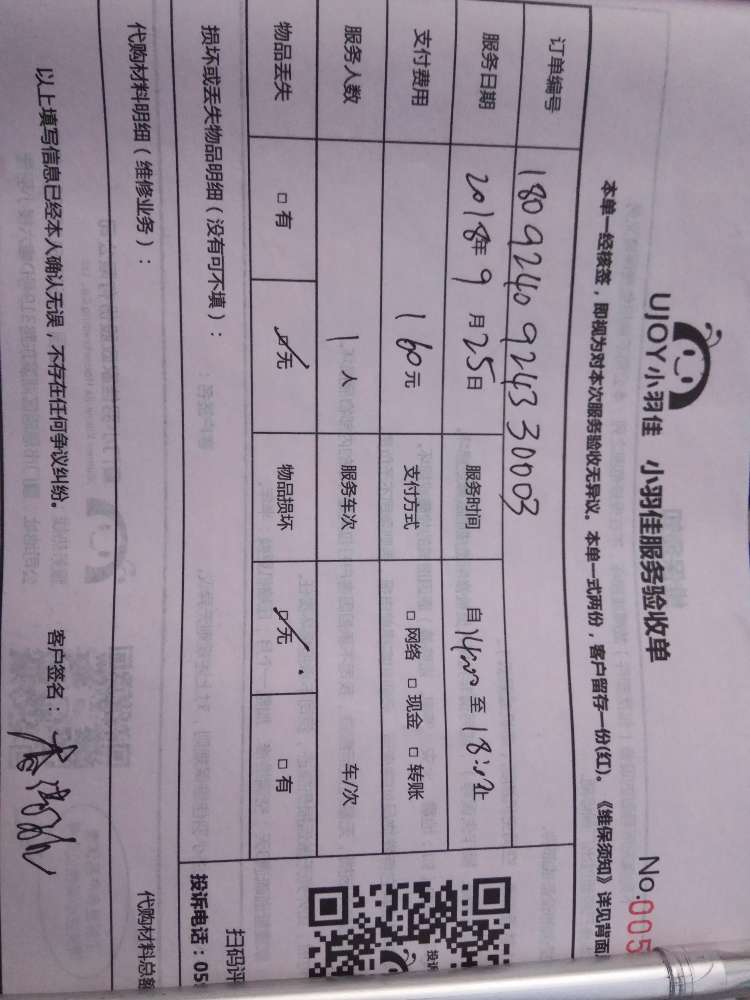 UJOY小羽佳 小羽佳服务验收单
No.005
本单一经核签，即视为对本次服务验收无异议。本单一式两份，客户留存一份(红)。《维保须知》详见背面
订单编号 1809240924330003
服务日期 2018年9月25日 服务时间 自14:00至18:00止
支付费用 160元 支付方式 □网络 □现金 □转账
服务人数 1人 服务车次 车/次
物品丢失 □有 ☑无 物品损坏 ☑无 □有
损坏或丢失物品明细（没有可不填）：
投诉
扫码评
投诉电话：05
代购材料明细（维修业务）：
代购材料总
以上填写信息已经本人确认无误，不存在任何争议纠纷。 客户签名：